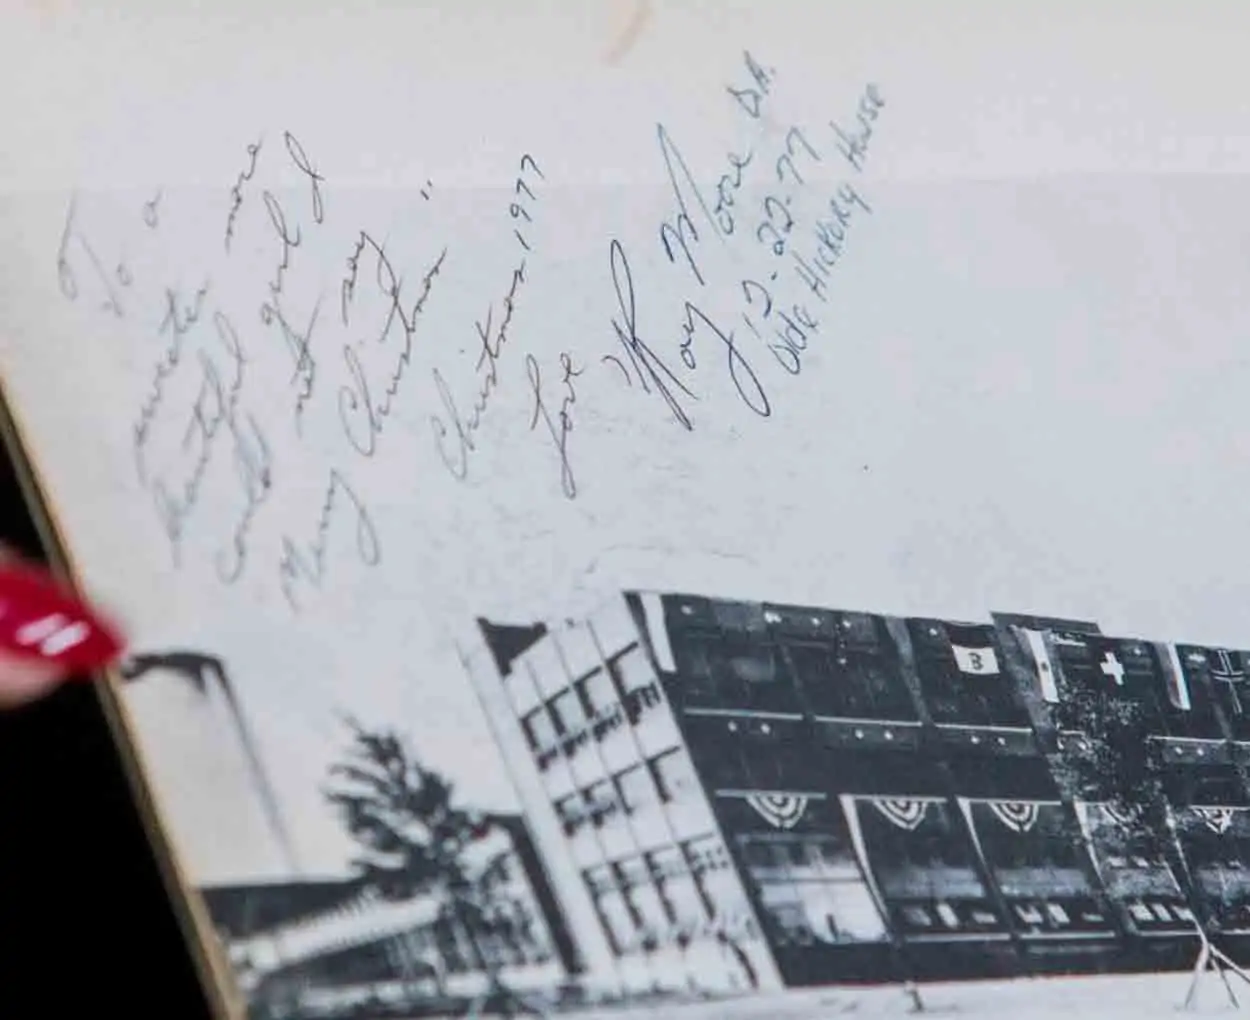 To a
sweeter more
beautiful girl I
could not say
Merry Christmas"
Christmas 1977
Love
Ray Moore D.A.
12-22-77
Olde Hickory House
B